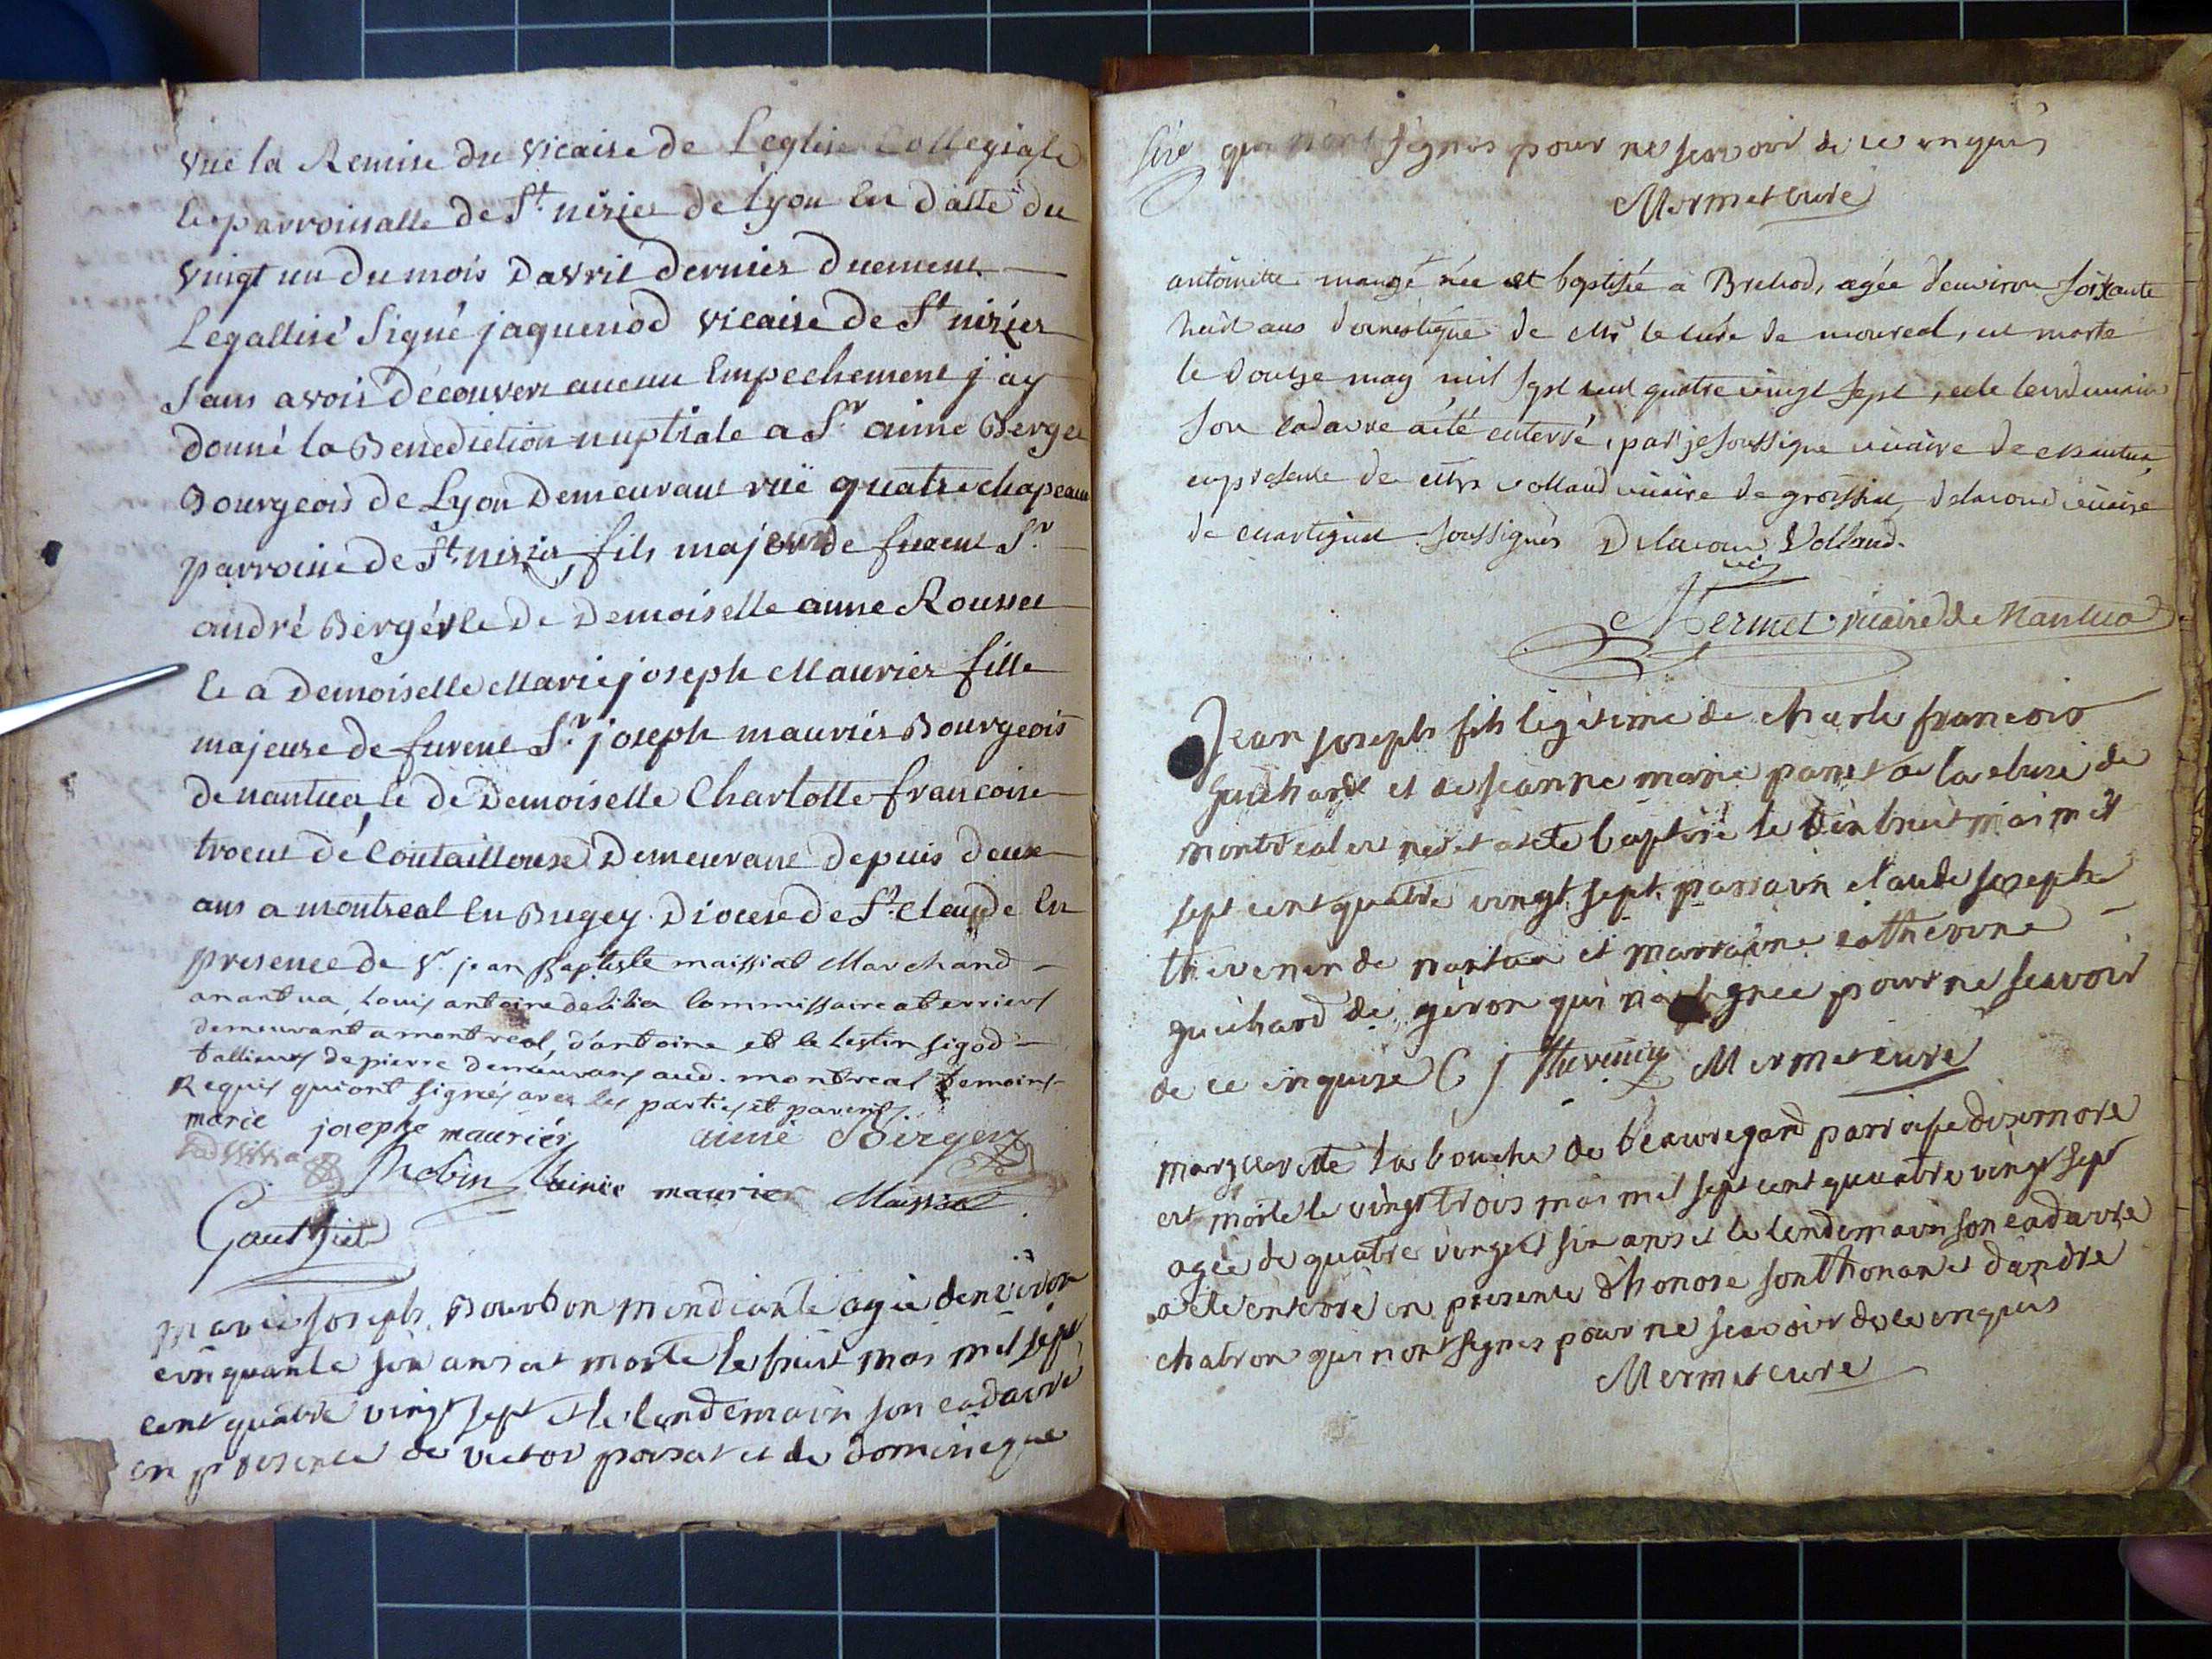 vue la Remise du vicaire de Leglise Collegiale
le parroissialle de St. nizier de Lyon En datte du
vingt un du mois Davril dernier duement
Legallisé Signé jaquenod vicaire de St nizier
Sans avoir découvert aucun Empechement j'ay
donné la Benediction nuptiale a Sr aimé Berger
Bourgeois de Lyon Demeurant rüe quatre chapeaux
parroisse de St. nizier, fils majeur de furent Sr.
andré Bergér le De Demoiselle anne Rousset
le a Demoiselle Marie joseph Mauriér fille
majeure de furent Sr. joseph mauriér Bourgeois
de nantua, le de Demoiselle Charlotte francoise
Demeurant depuis deux
ans a montreal En Bugey. Diocese de St. Claude En
presence de Sr. jean Baptiste maissiat Marchand
a nantua, Louis antoine delilia Commissaire a terriers
demeurant a montreal, d'antoine et Celestin sigod
tallieurs de pierre demeurans aud. montreal temoins
Requis qui ont signés avec les parties et parens.
marie josephe mauriér aimé Berger
Robin aimée maurier Maissiat
Gauthier
marie joseph Bourbon mendiante agée denviron
cinquante six ans est morte le huit mai mil sept
cent quatre vingt sept et le lendemain son cadavre
en presence de victor poisat et de dominique
qui n'ont signés pour ne scavoir de ce enquis
Mermet curé
antoinette mangé née et baptisée à Brenod, agée d'environ soixante
huit ans domestique de Mr le curé de montreal, est morte
le douze may mil sept cent quatre vingt sept, et le lendemain
son cadavre a été enterré, par je soussigné vicaire de Nantua,
en presence de Mrs volland vicaire de groissiat, delacour vicaire
de Martignat soussignés Delacour Volland
vic
Mermet vicaire de Nantua
Jean joseph fils legitime de charle francois
guichard et de jeanne marie panet de la cluse de
montreal est né et a eté baptisé le dix huit mai mil
sept cent quatre vingt sept. parrain claude joseph
thevenin de nantua et marraine catherine
guichard de giron qui n'a signée pour ne scavoir
de ce enquise C j Thevenin Mermet curé
marguerite la bouche de beauregard parroisse
est morte le vingt trois mai mil sept cent quatre vingt sept
agée de quatre vingt six ans et le lendemain son cadavre
a eté enterré en presence d'honoré sonthonax et d'andré
chatron qui n'ont signés pour ne scavoir de ce enquis
Mermet curé